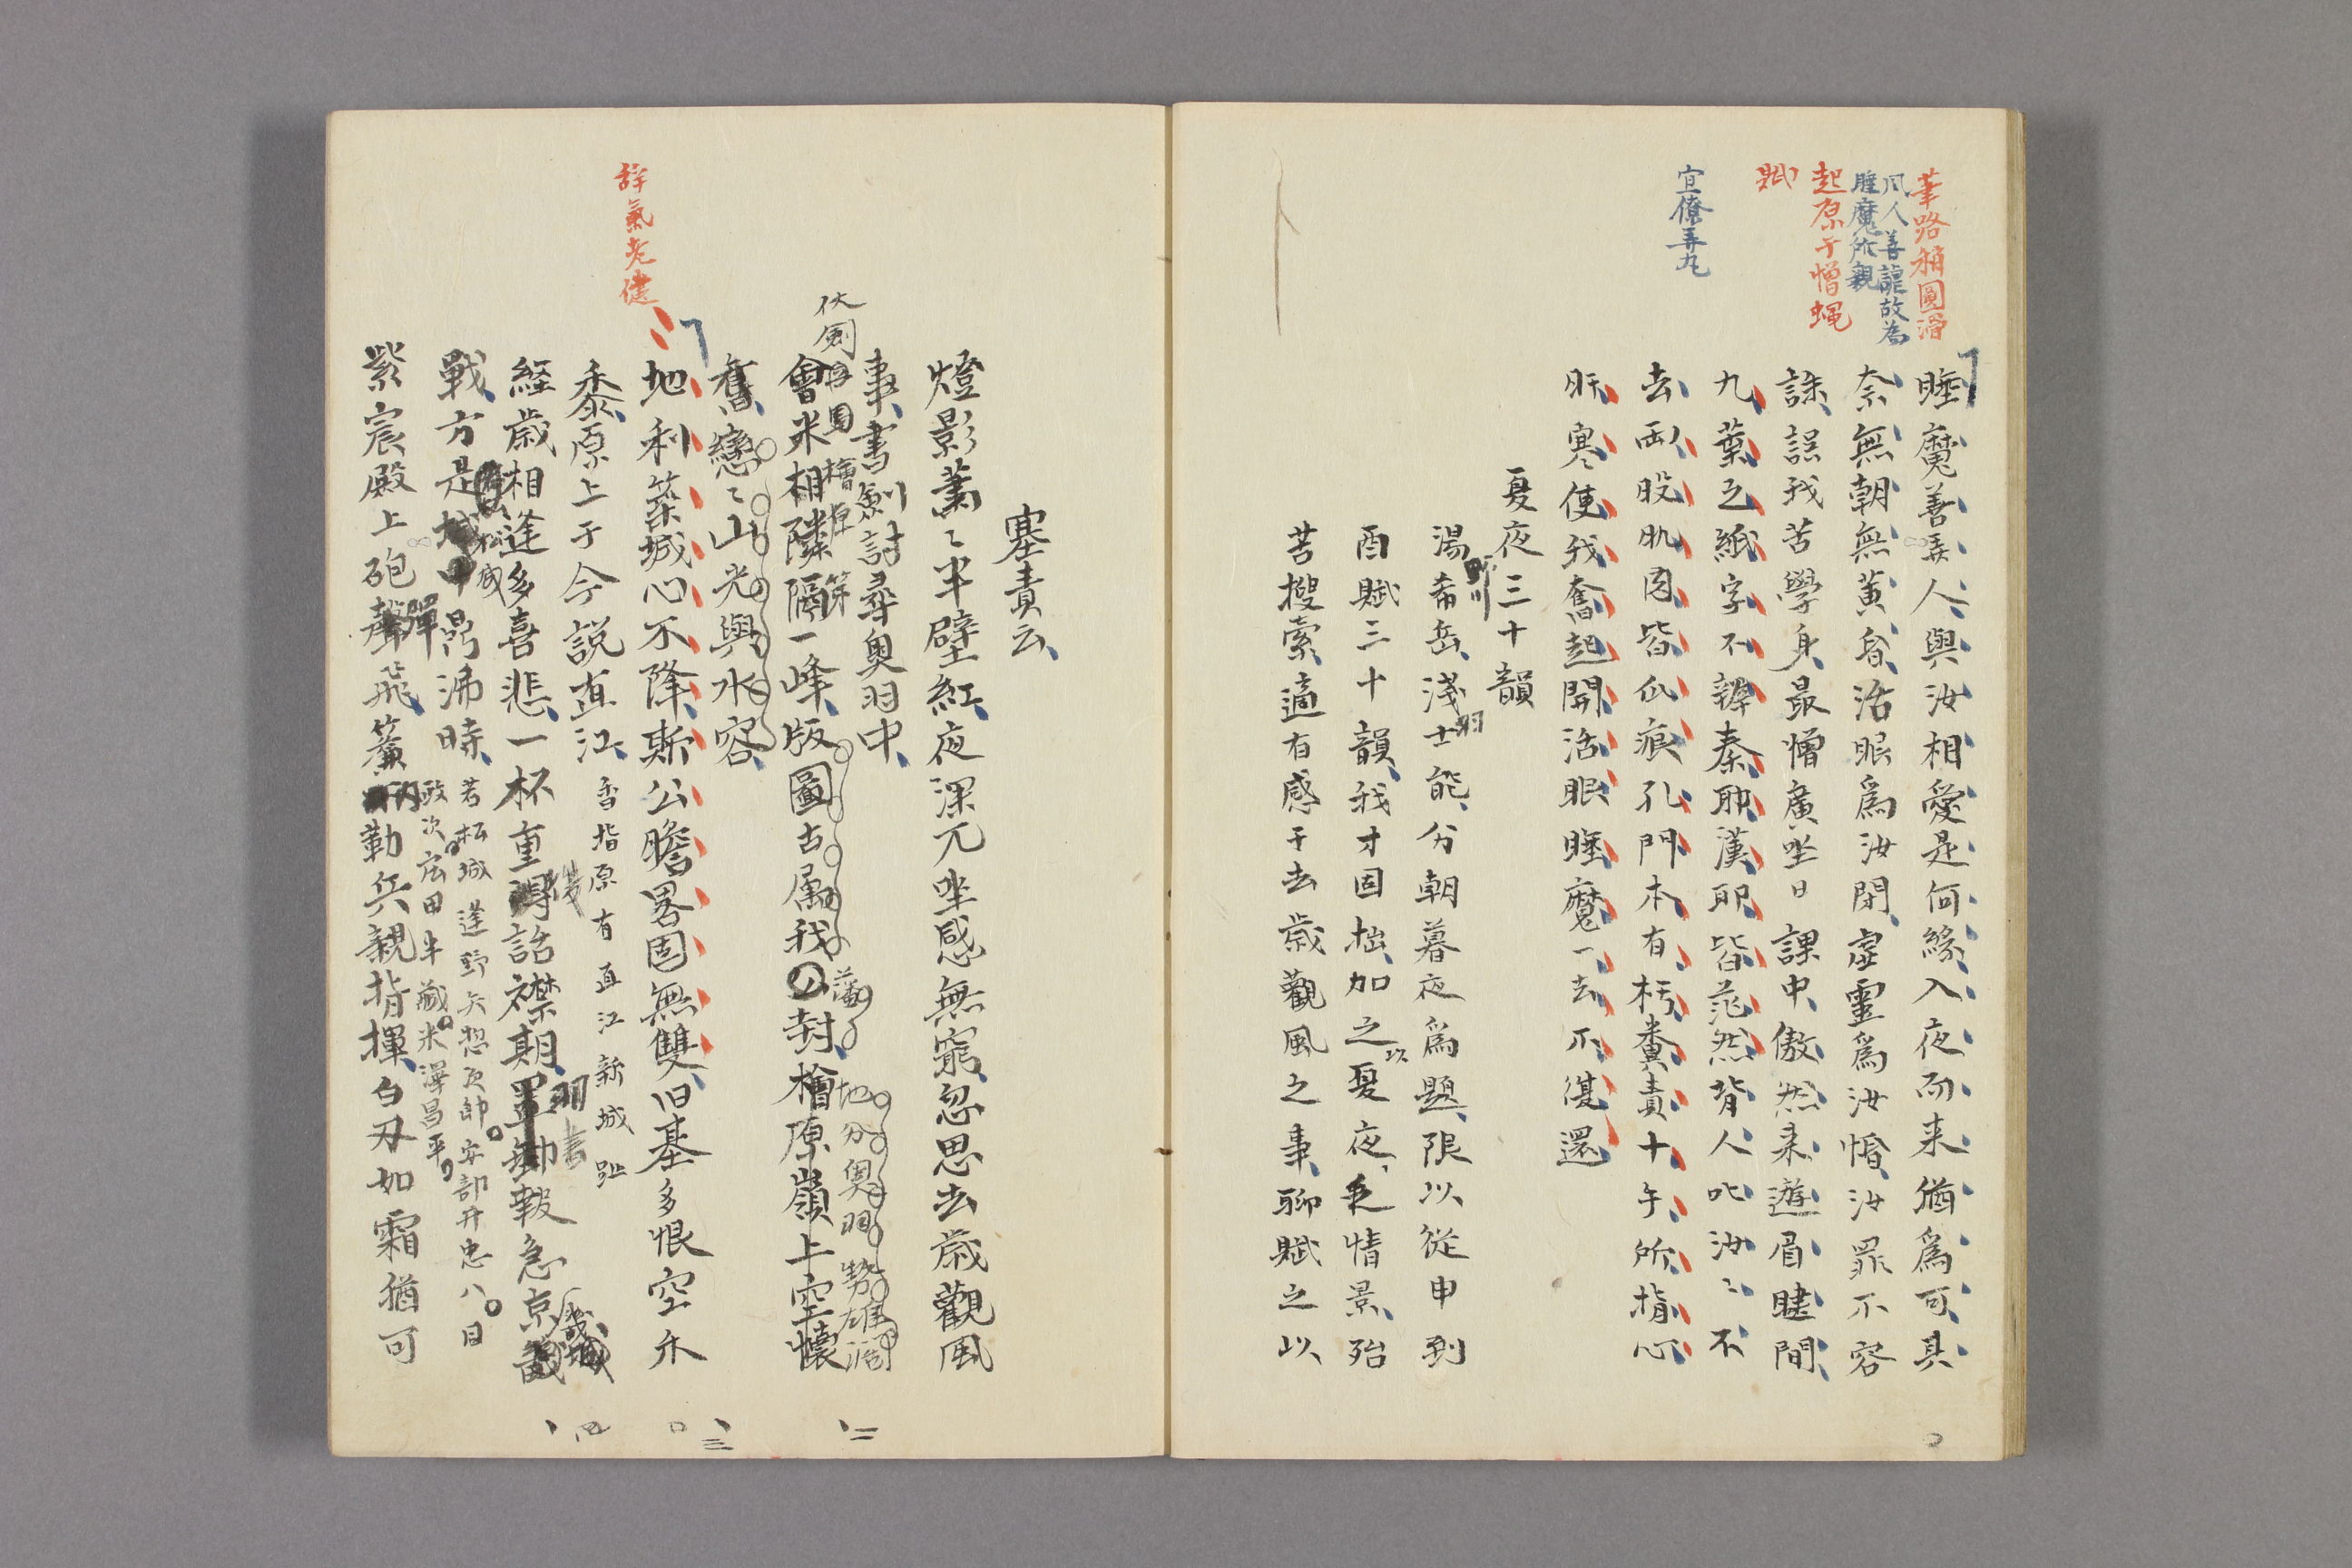 筆路稍圓滑
凡人善譃故為
睡魔所親
起原于憎蝿
賦
宜僚弄丸
睡魔善弄人與汝相愛是何緣入夜而来猶為可具
奈無朝無黄昏活眠為汝閉虛靈為汝惛汝罪不容
誅誤我苦學身最憎廣坐日課中傲然来遊眉睫間
九葉之紙字不辨秦耶漢耶皆茫然背人叱汝々不
去両股肌肉皆爪痕孔門本有朽糞責十午所指心
肝寒使我奮起開活眠睡魔一去不復還
夏夜三十韻
湯野川希岳淺羽士能分朝暮夜為題限以從申到
酉賦三十韻我才固拙加之以夏夜乏情景殆
苦搜索適有感于去歳觀風之事聊賦之以
塞責云
燈影蕭々半壁紅夜深兀坐感無窮忽思去歳觀風
事書劍討尋奥羽中
伏劍
會米相隣隔一峰版圖古属我公封檜原嶺上空懷
藩
地分奥羽勢雄濶
舊戀々山光與水容
辞氣老健
地利築城心不降斯公膽畧固無雙旧基多恨空禾
黍原上于今説直江 香指原有直江新城趾
経歳相逢多喜悲一杯重話襟期羽書報急京
戰方是鼎沸時 若松城逢野矢惣次郎安部井忠八日
政次広田半蔵米澤昌平
紫宸殿上砲彈飛簾内勒兵親指揮白刃如霜猶可
二
三
四